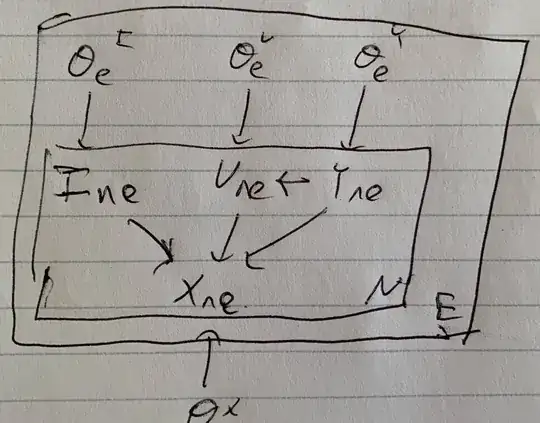 θ_e^I θ_e^U θ_e^Y
I_ne U_ne ← Y_ne
X_ne N
E
θ^X